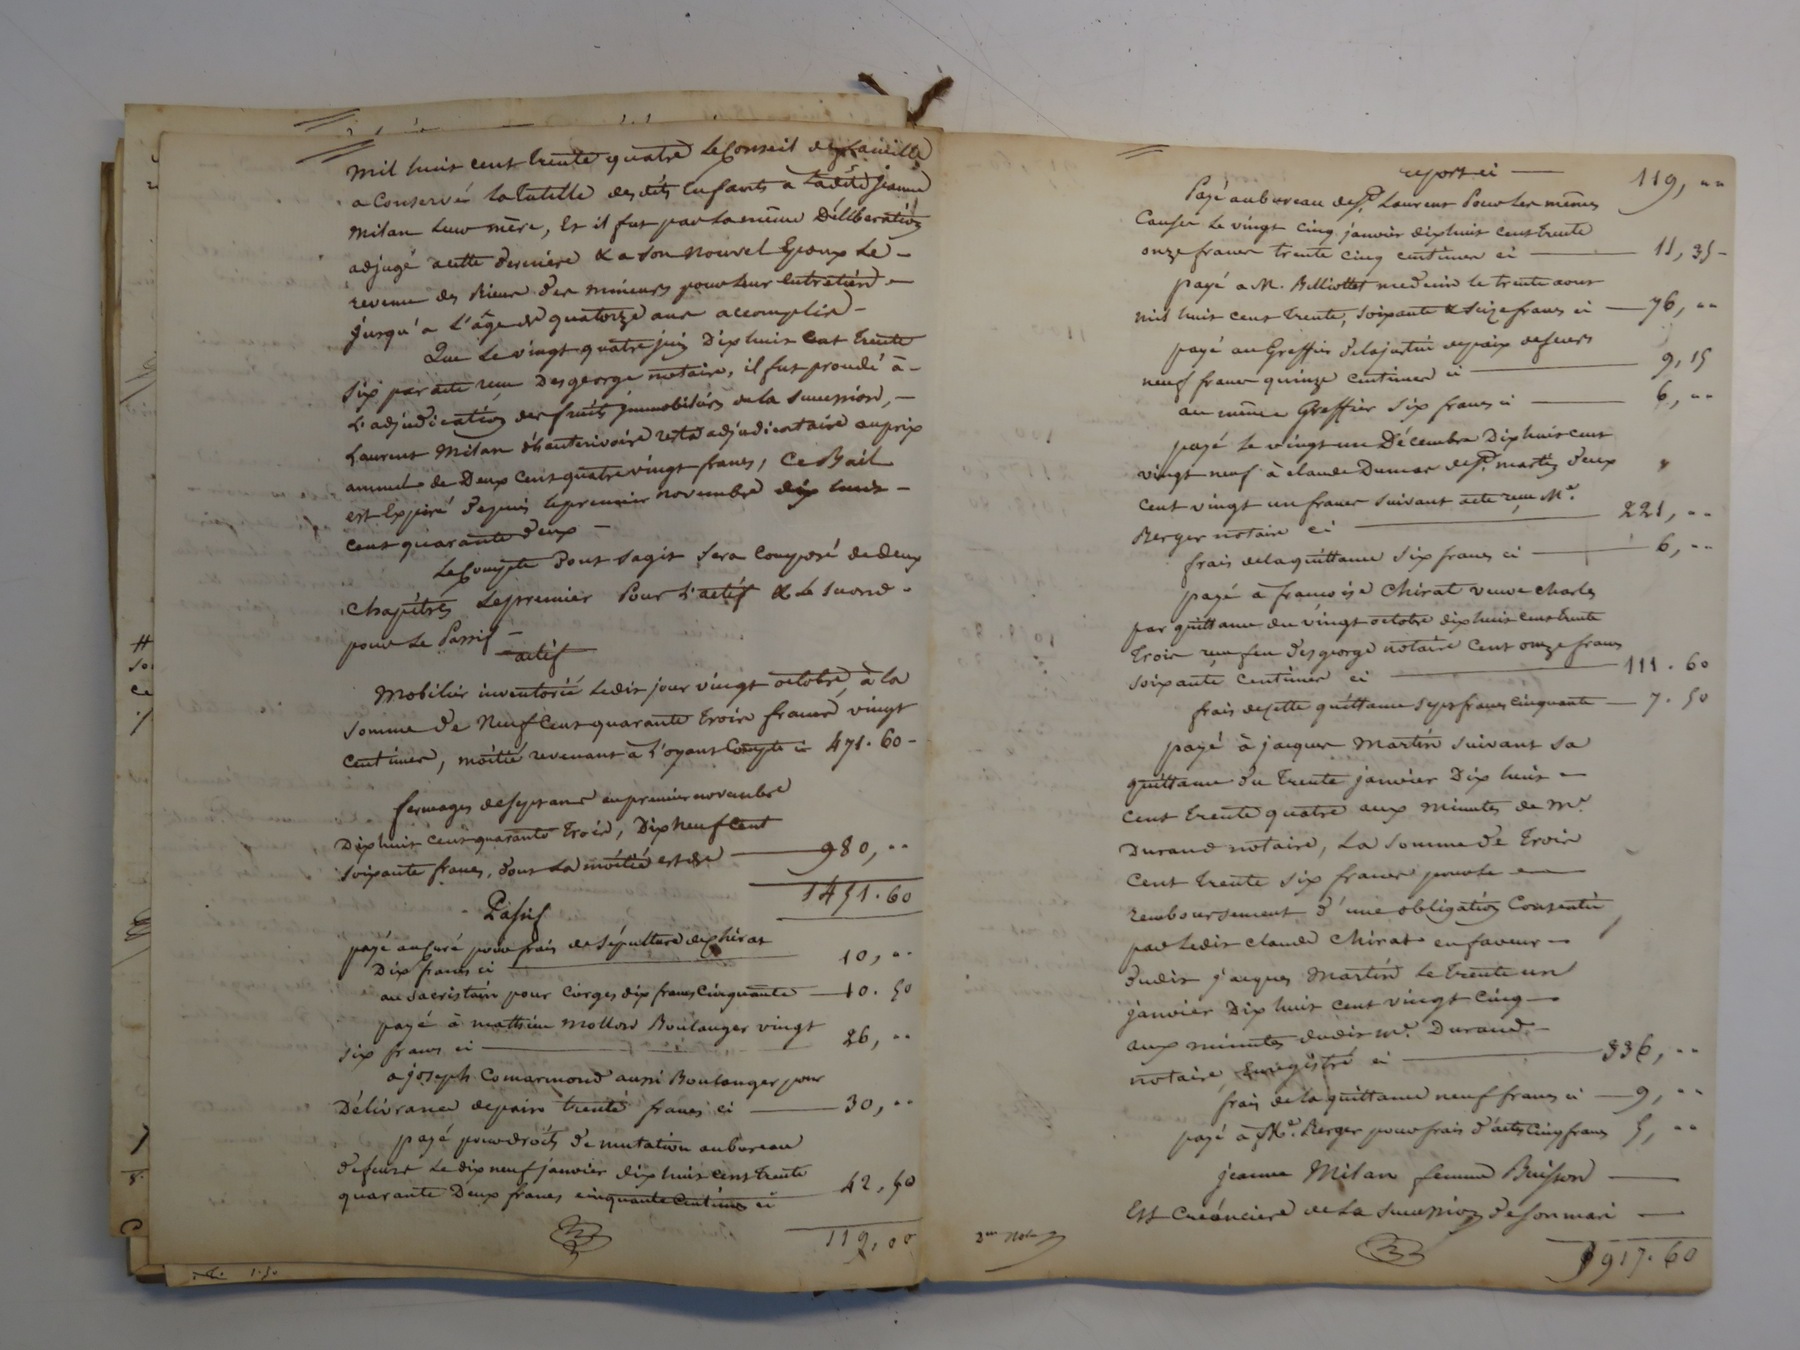 mil huit cent trente quatre le Conseil de famille
a Conservé la Tutelle des dits Enfants a ladite Jeanne
Milan leur mère, Et il fut par la même Déliberation
adjugé a cette derniere & a son nouvel Epoux le
revenu des Biens des mineurs pour leur entretien
jusqu'a l'âge de quatorze ans accomplis
Que le vingt quatre juin Dix huit cent trente
six par acte reçu Desgeorge notaire, il fut procedé à
L'adjudication des fruits immobiliers de la succession,
Laurent Milan d'hauterivoire resta adjudicataire au prix
annuel de Deux Cent quatre vingt francs, Ce Bail
est Expiré depuis le premier novembre dix huit
cent quarante deux
Le Compte dont sagit sera Composé de deux
Chapitres le premier Pour l'actif & Le second
pour Le Passif
actif
Mobilier inventorié ledit jour vingt octobre, à la
somme de Neuf Cent quarante trois francs vingt
Centimes, moitié revenant à l'oyant Compte ci 471.60
fermages de sept ans au premier novembre
Dix huit cent quarante trois, Dix neuf Cent
soixante francs, dont la moitié est de 980, ..
1451.60
Passif
payé au Curé pour frais de sépulture de chirat
Dix francs ci 10, ..
au sacristain pour Cierges dix francs Cinquante 10.50
payé à mathieu Mollon Boulanger vingt
six francs ci 26, ..
a joseph Comarmond aussi Boulanger pour
Délivrance de pain trente francs ci 30, ..
payé pour droits de mutation au bureau
de feurs le dix neuf janvier dix huit cent trente
quarante Deux francs cinquante Centimes ci 42,50
119,00
report ci 119, ..
Payé au bureau de St Laurent Pour les mêmes
Causes le vingt cinq janvier dix huit cent trente
onze francs trente cinq centimes ci 11,35
payé a M. Billiottet medecin le trente aout
mil huit cent trente, soixante & seize francs ci 76, ..
payé au Greffier de la justice de paix de feurs
neuf francs quinze centimes ci 9,15
au même Greffier six francs ci 6, ..
payé le vingt un Décembre Dix huit cent
vingt neuf à claude Dumas de St martin deux
Cent vingt un francs suivant acte reçu Me
Berger notaire ci 221, ..
frais de la quittance six francs ci 6, ..
payé à francoise Chirat veuve Charles
par quittance du vingt octobre dix huit cent trente
trois reçu feu desgeorge notaire Cent onze francs
soixante Centimes ci 111.60
frais de cette quittance sept francs Cinquante 7.50
payé à jacques Martin suivant sa
quittance du trente janvier Dix huit
cent trente quatre aux minutes de Me
Durand notaire, la somme de trois
Cent trente six francs pour le
remboursement d'une obligation Consentie
par ledit claude Chirat en faveur
dudit jacques Martin le trente un
janvier Dix huit cent vingt Cinq
aux minutes dudit Me Durand
notaire Enregistré ci 336, ..
frais de la quittance neuf francs ci 9, ..
payé à Me Berger pour frais d'acte Cinq francs 5, ..
jeanne Milan femme Buisson
Est Créancière de la succession de son mari
917.60